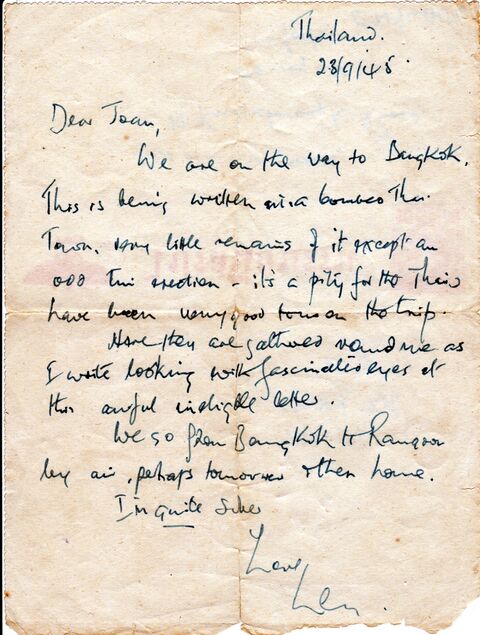 Thailand.
23/9/45
Dear Joan,
We are on the way to Bangkok.
This is being written in a bombed Thai
Town. very little remains of it except an
odd tin erection - it's a pity for the Thais
have been very good to us on the trip.
Here they are gathered round me as
I write looking with fascinated eyes at
this awful ineligible letter.
We go from Bangkok to Rangoon
by air, perhaps tomorrow & then home.
I'm quite sober
Love
Len.